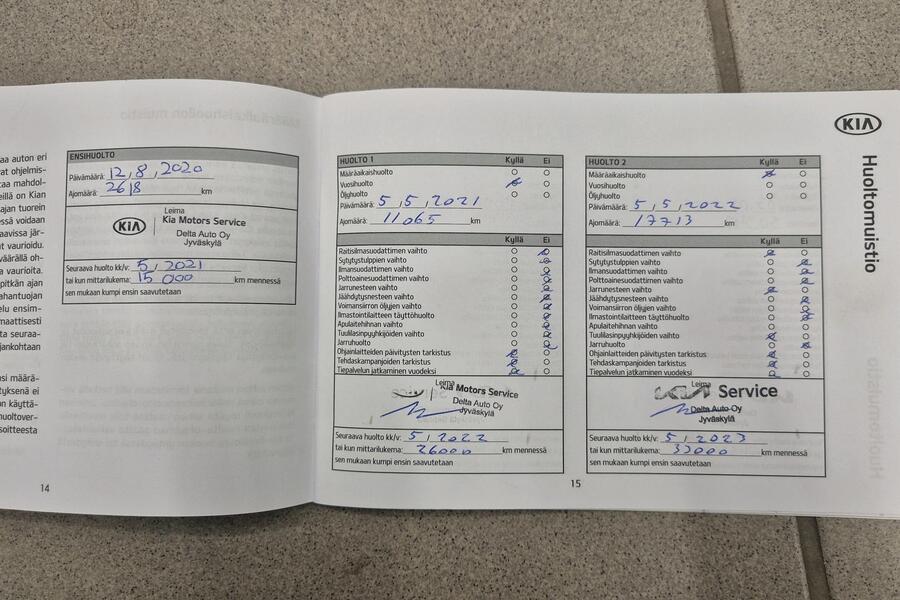 aa auton eri
at ohjelmis-
taa mahdol-
eillä on Kian
ajan tuorein
essä voidaan
aavissa jär-
t vaurioidu.
väärällä oh-
a vaurioita.
pitkän ajan
ahantuojan
elu ensim-
maattisesti
ta seuraa-
jankohtaan
nsi määrä-
tyksenä ei
n käyttä-
huoltover-
soitteesta
14
ENSIHUOLTO
Päivämäärä: 12,8,2020
Ajomäärä: 2618 km
Leima
KIA Kia Motors Service
Delta Auto Oy
Jyväskylä
Seuraava huolto kk/v: 5,2021
tai kun mittarilukema: 15 000 km mennessä
sen mukaan kumpi ensin saavutetaan
HUOLTO 1 Kyllä Ei
Määräaikaishuolto
Vuosihuolto
Öljyhuolto
Päivämäärä: 5,5,2021
Ajomäärä: 11065 km
Kyllä Ei
Raitisilmasuodattimen vaihto
Sytytystulppien vaihto
Ilmansuodattimen vaihto
Polttoainesuodattimen vaihto
Jarrunesteen vaihto
Jäähdytysnesteen vaihto
Voimansiirron öljyjen vaihto
Ilmastointilaitteen täyttöhuolto
Apulaitehihnan vaihto
Tuulilasinpyyhkijöiden vaihto
Jarruhuolto
Ohjainlaitteiden päivitysten tarkistus
Tehdaskampanjoiden tarkistus
Tiepalvelun jatkaminen vuodeksi
Leima
Kia Motors Service
Delta Auto Oy
Jyväskylä
Seuraava huolto kk/v: 5,2022
tai kun mittarilukema: 26000 km mennessä
sen mukaan kumpi ensin saavutetaan
HUOLTO 2 Kyllä Ei
Määräaikaishuolto
Vuosihuolto
Öljyhuolto
Päivämäärä: 5,5,2022
Ajomäärä: 17713 km
Kyllä Ei
Raitisilmasuodattimen vaihto
Sytytystulppien vaihto
Ilmansuodattimen vaihto
Polttoainesuodattimen vaihto
Jarrunesteen vaihto
Jäähdytysnesteen vaihto
Voimansiirron öljyjen vaihto
Ilmastointilaitteen täyttöhuolto
Apulaitehihnan vaihto
Tuulilasinpyyhkijöiden vaihto
Jarruhuolto
Ohjainlaitteiden päivitysten tarkistus
Tehdaskampanjoiden tarkistus
Tiepalvelun jatkaminen vuodeksi
Leima
KIA Service
Delta Auto Oy
Jyväskylä
Seuraava huolto kk/v: 5,2023
tai kun mittarilukema: 33000 km mennessä
sen mukaan kumpi ensin saavutetaan
15
KIA
Huoltomuistio